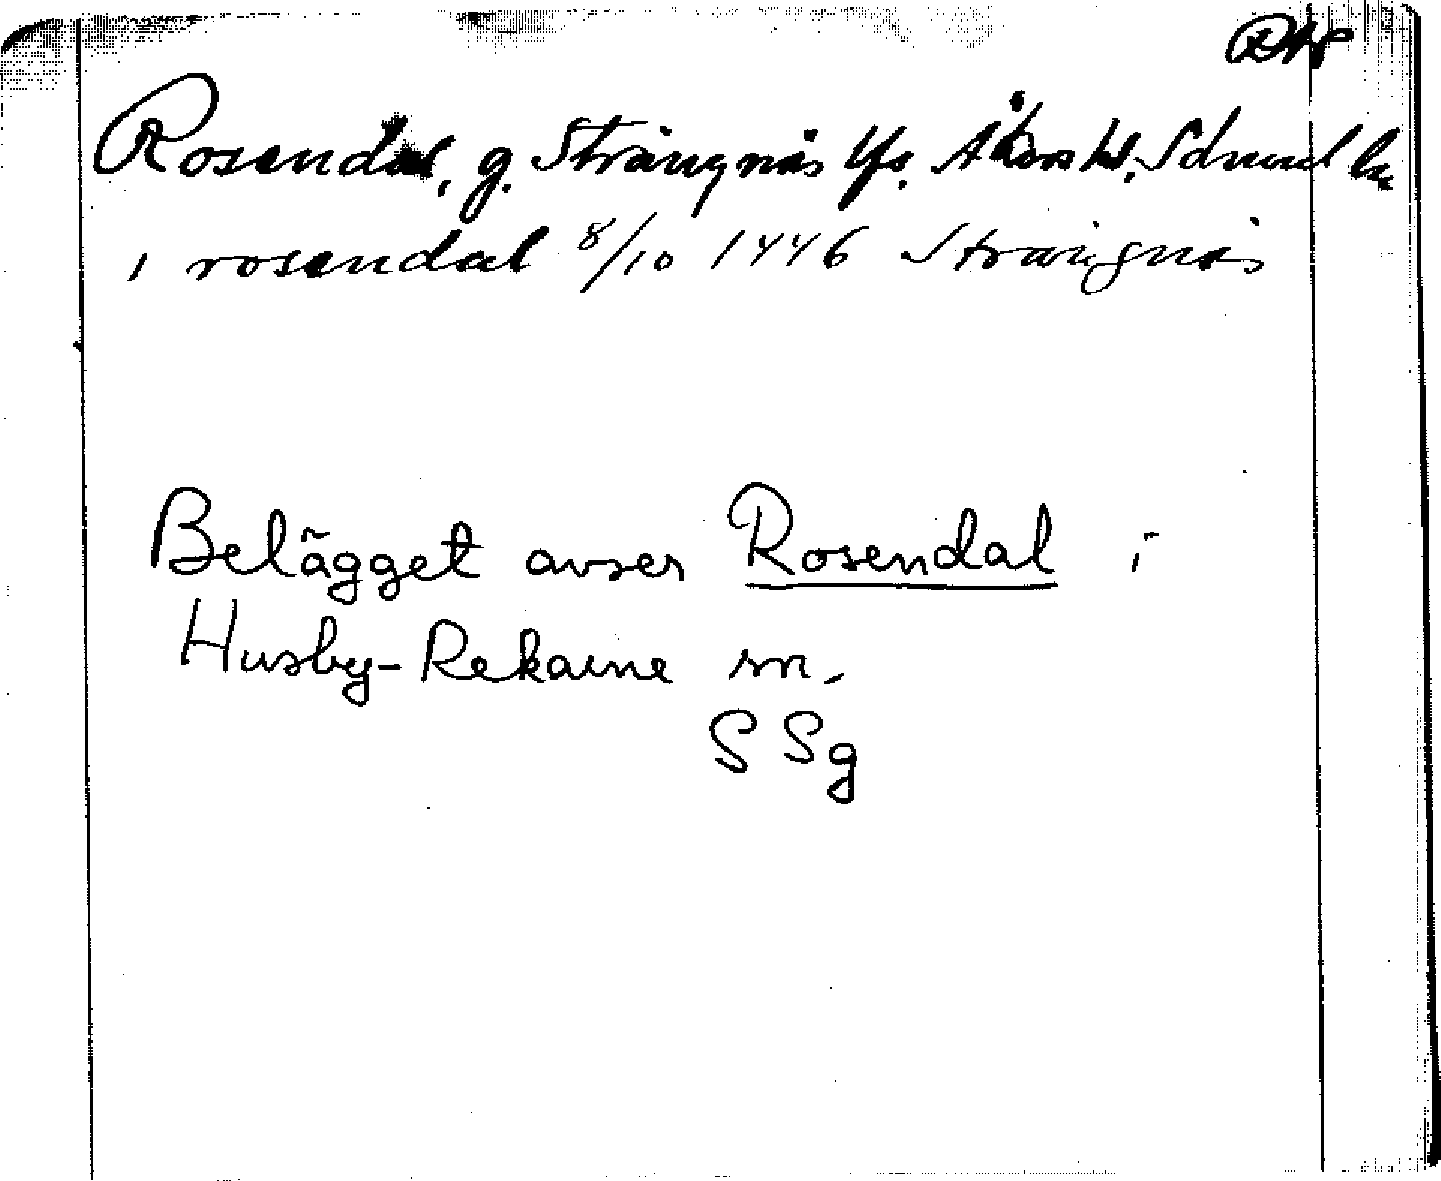 Rosendal, g. Strängnäs lfs. Åkers hd. Sdmnl ln
i rosendal 8/10 1446 Strängnäs
Belägget avser Rosendal i
Husby-Rekarne sn.
SSg